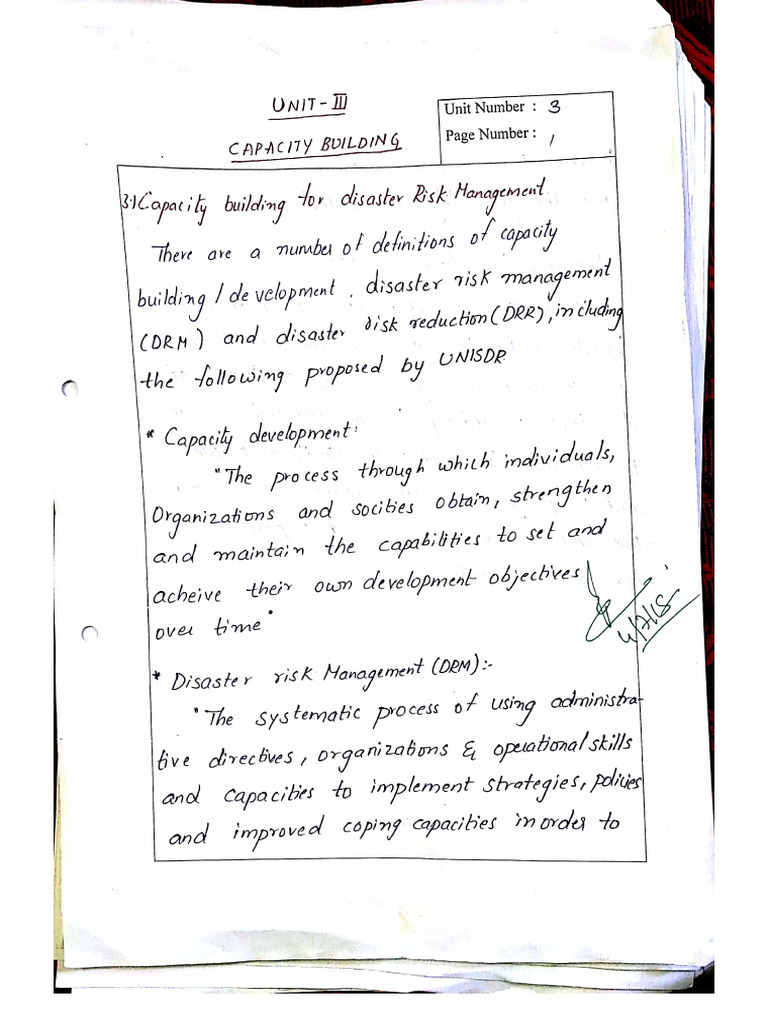 UNIT-III
Unit Number : 3
CAPACITY BUILDING
Page Number : 1
3.1 Capacity building for disaster Risk Management
There are a number of definitions of capacity
building / development, disaster risk management
(DRM) and disaster risk reduction (DRR), including
the following proposed by UNISDR
* Capacity development:
"The process through which individuals,
Organizations and socities obtain, strengthen
and maintain the capabilities to set and
acheive their own development objectives
over time"
4/7/18
* Disaster risk Management (DRM):-
"The systematic process of using administra-
tive directives, organizations & operational skills
and capacities to implement strategies, policies
and improved coping capacities inorder to